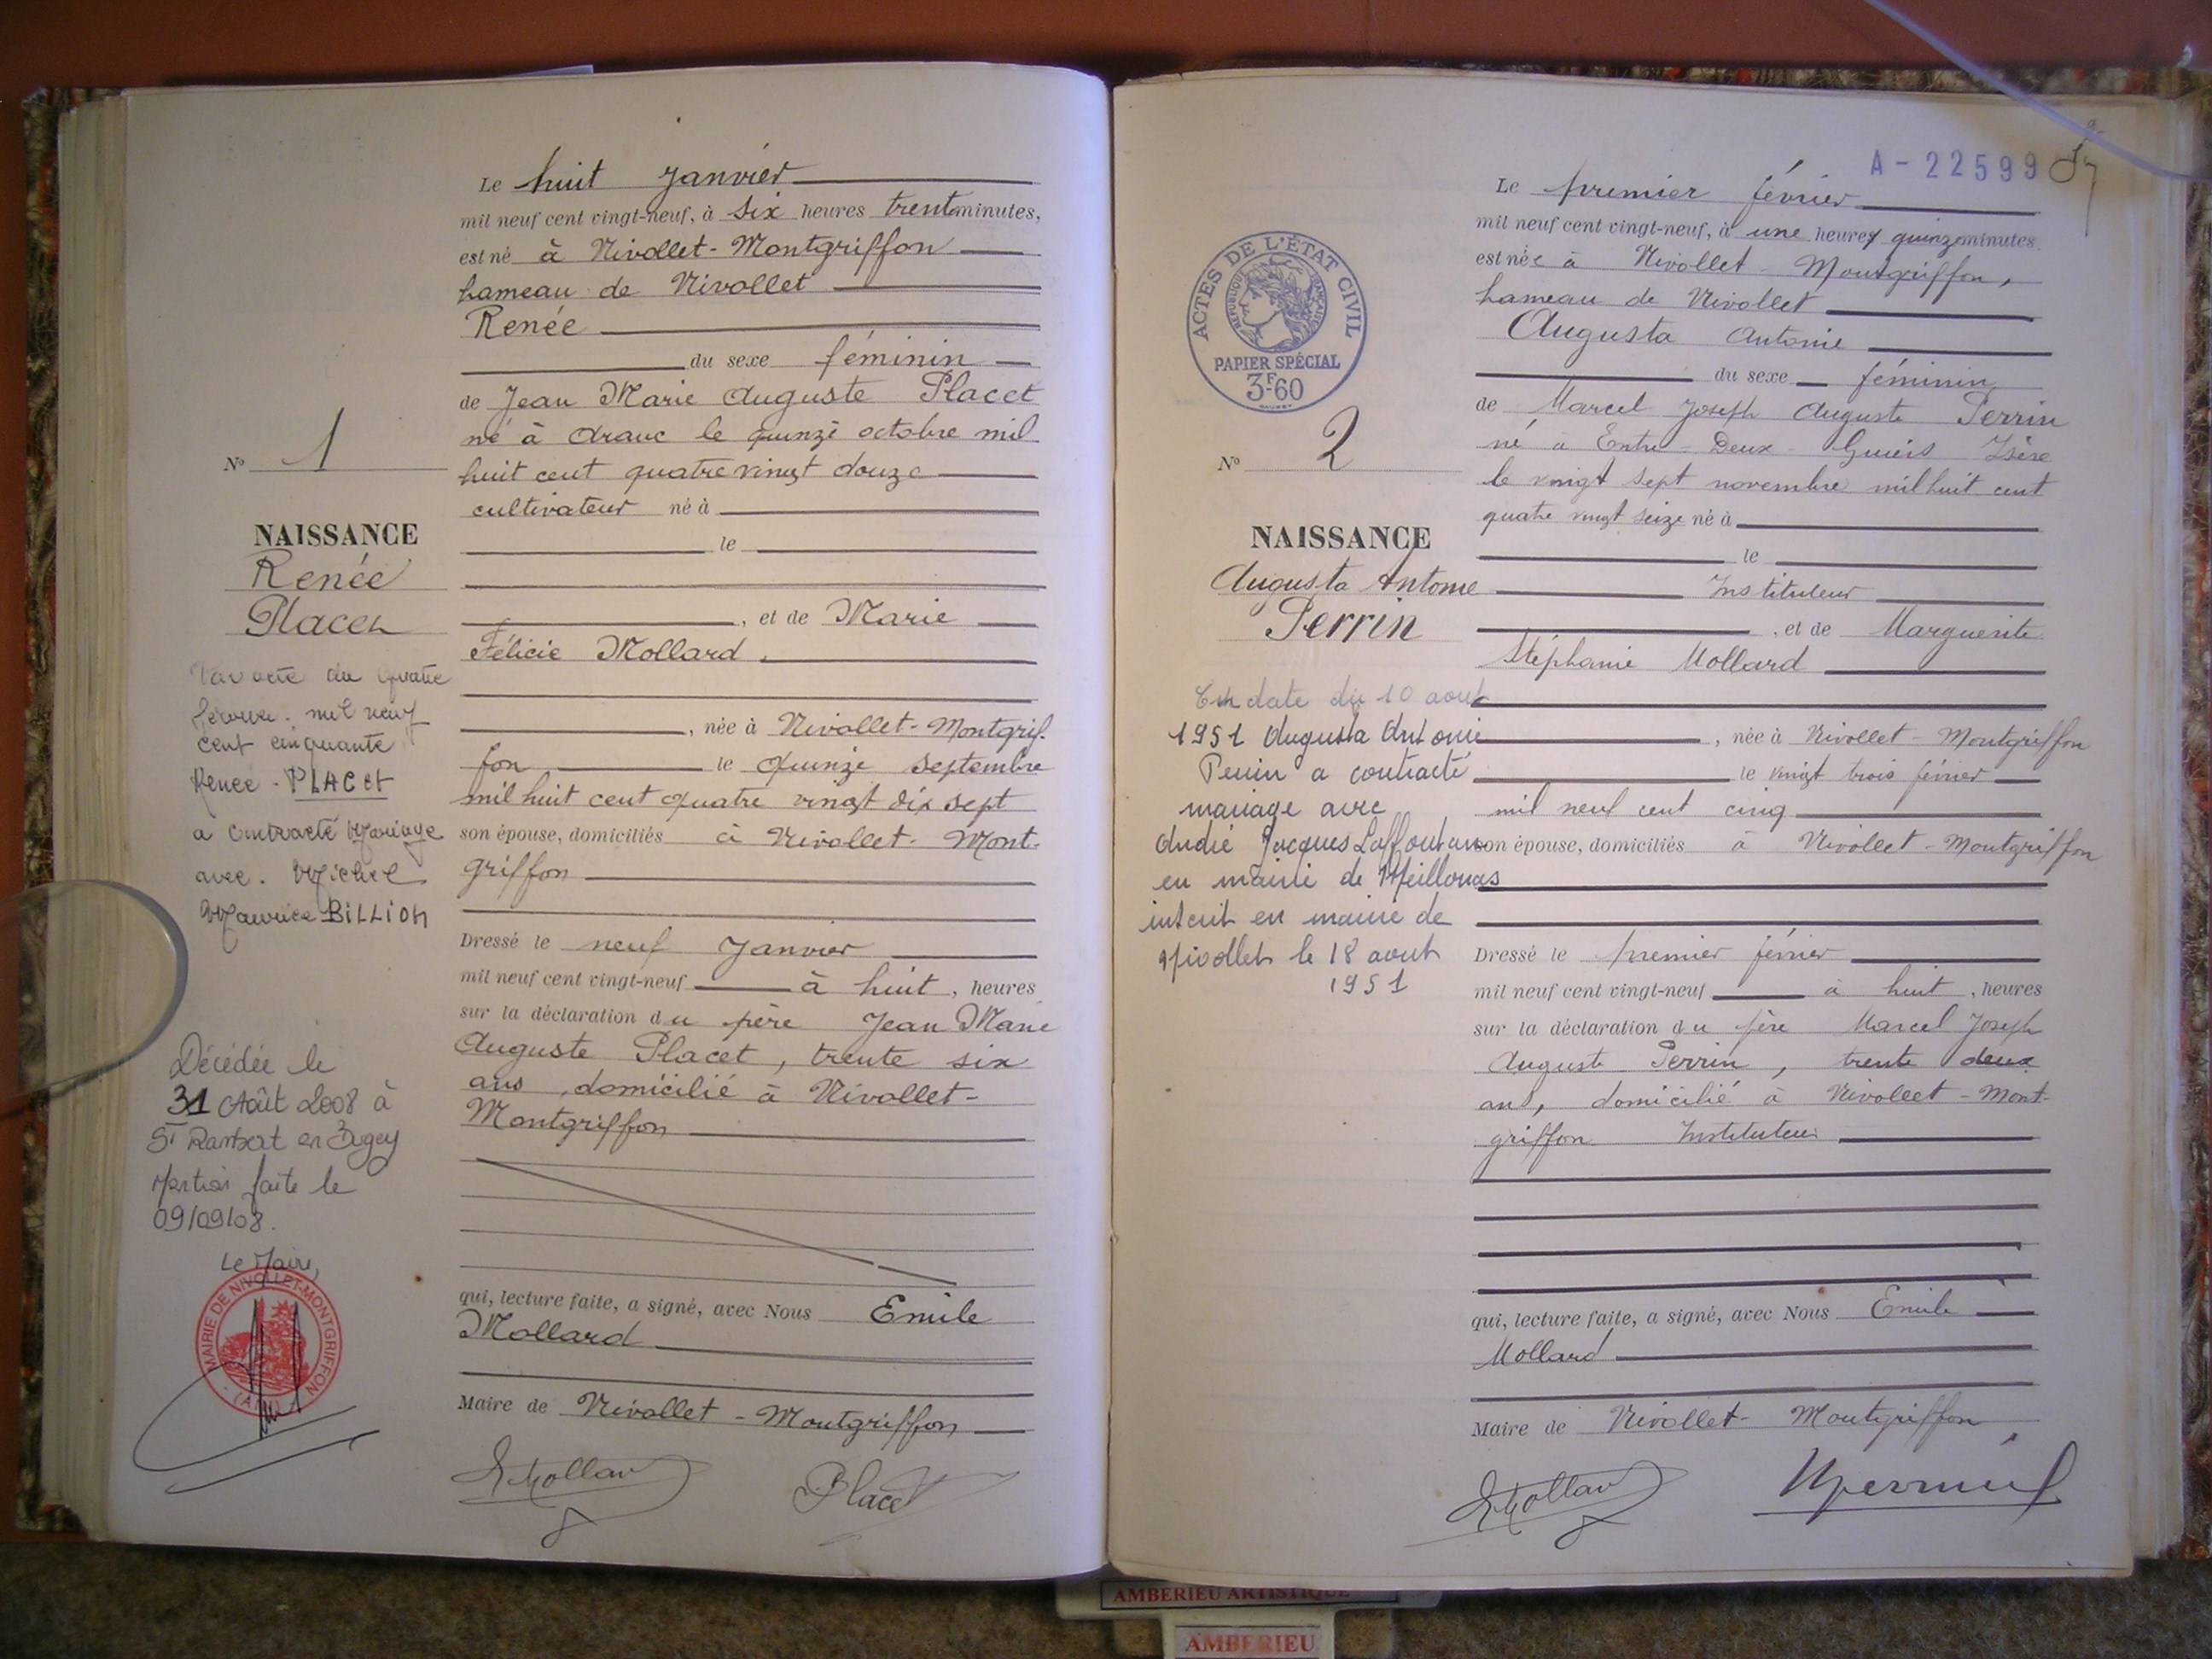 Le huit Janvier
mil neuf cent vingt-neuf, à six heures trente minutes,
est né à Nivollet-Montgriffon
hameau de Nivollet
Renée
du sexe féminin
de Jean Marie Auguste Placet
né à Aranc le quinze octobre mil
huit cent quatre vingt douze
cultivateur né à
le
, et de Marie
Félicie Mollard.
, née à Nivollet-Montgrif-
fon le quinze Septembre
mil huit cent quatre vingt dix sept
son épouse, domiciliés à Nivollet-Mont-
griffon
Dressé le neuf Janvier
mil neuf cent vingt-neuf à huit, heures
sur la déclaration du père Jean Marie
Auguste Placet, trente six
ans, domicilié à Nivollet-
Montgriffon
qui, lecture faite, a signé, avec Nous Emile
Mollard
Maire de Nivollet-Montgriffon
EMollard
Placet
No 1
NAISSANCE
Renée
Placet
Par acte du quatre
février mil neuf
cent cinquante
Renée - PLACET
a contracté Mariage
avec. Michel
Maurice BILLION
Décédée le
31 Août 2008 à
St Rambert en Bugey
Mention faite le
09/09/08.
Le Maire,
MAIRIE DE NIVOLLET-MONTGRIFFON
(AIN)
A-22599
Le premier février
mil neuf cent vingt-neuf, à une heures quinze minutes
est née à Nivollet-Montgriffon,
hameau de Nivollet
Augusta Antonie
du sexe féminin
de Marcel Joseph Auguste Perrin
né à Entre-Deux-Guiers Isère
le vingt sept novembre mil huit cent
quatre vingt seize né à
le
Instituteur
, et de Marguerite
Stéphanie Mollard
, née à Nivollet-Montgriffon
le vingt trois février
mil neuf cent cinq
son épouse, domiciliés à Nivollet-Montgriffon
Dressé le premier février
mil neuf cent vingt-neuf à huit, heures
sur la déclaration du père Marcel Joseph
Auguste Perrin, trente deux
ans, domicilié à Nivollet-Mont-
griffon Instituteur
qui, lecture faite, a signé, avec Nous Emile
Mollard
Maire de Nivollet-Montgriffon
EMollard
ACTES DE L'ÉTAT CIVIL
RÉPUBLIQUE FRANÇAISE
PAPIER SPÉCIAL
3F60
No 2
NAISSANCE
Augusta Antonie
Perrin
En date du 10 août
1951 Augusta Antonie
Perrin a contracté
mariage avec
André Jacques
en mairie de Meillonnas
inscrit en mairie de
Nivollet le 18 août
1951
AMBERIEU ARTISTIQUE
AMBERIEU